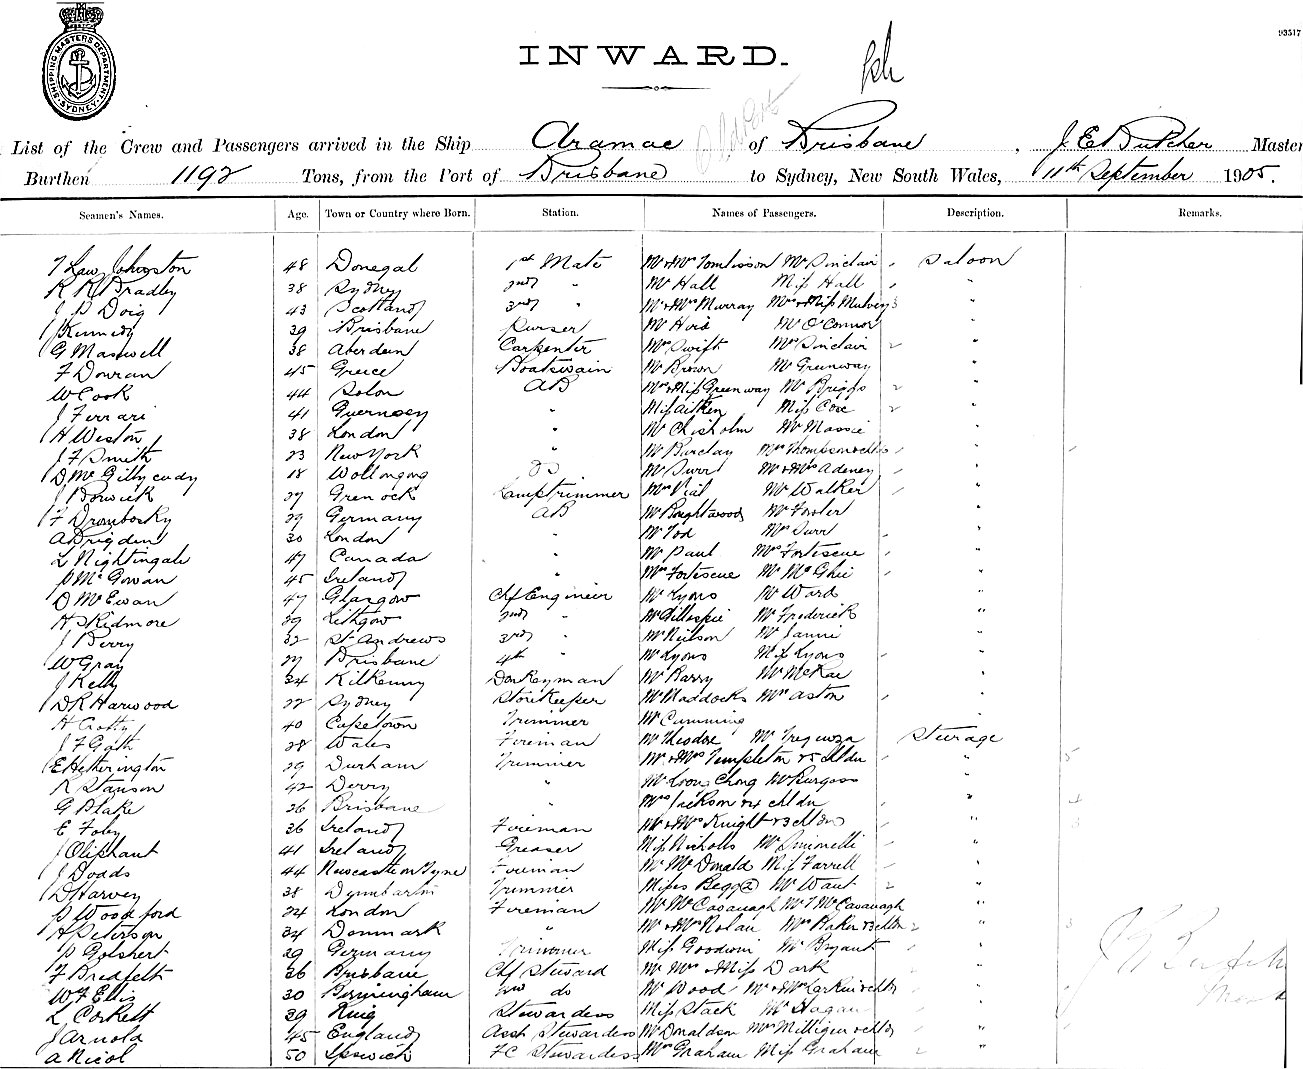 93517
SHIPPING MASTERS DEPARTMENT
SYDNEY
INWARD.
List of the Crew and Passengers arrived in the Ship Aramac of Brisbane, J. E. Butcher Master
Burthen 1192 Tons, from the Port of Brisbane to Sydney, New South Wales, 11th September 1905.
Seamen's Names. Age. Town or Country where Born. Station. Names of Passengers. Description. Remarks.
T Law Johnston 48 Donegal 1st Mate Mr & Mrs Tomlisson Mr Sinclair Saloon
R R Bradley 38 Sydney 2nd " Mr Hall Miss Hall "
J P Doig 43 Scotland 3rd " Mr & Mrs Murray Mrs & Miss Mulvey 3 "
J Kennedy 39 Brisbane Purser Mr Mr O'Connor "
G Maxwell 38 Aberdeen Carpenter Mrs Swift Mrs Sinclair 2 "
F Douran 45 Greece Boatswain Mr Brown Mr Greenway "
W Cook 44 AB Mrs & Miss Greenway Mr Briggs 2 "
J Ferrari 41 Guernsey " Miss Aitken Miss Coxe 2 "
H Weston 38 London " Mr Chisholm Mr Massie "
J F Smith 23 New York " Mr Barclay Mrs Thompson "
D McGillycudy 18 Wollongong Mr Mr & Mrs Adeney "
J Borwick 27 Grenock Lamptrimmer Mrs Vial Mr Walker "
F Drombosky 29 Germany AB Mr Boughtwood Mr Fowler "
A Brigden 30 London " Mr Tod Mrs "
L Nightingale 47 Canada " Mr Paul Mrs Fortescue "
P McGowan 45 Ireland " Mrs Fortescue Mr McGhie "
D McEwan 47 Glasgow Chf Engineer Mr Lyons Mr Ward "
H Skidmore 29 Lithgow 2nd " Mr Gillespie Mr Frederick "
J Berry 32 St Andrews 3rd " Mr Neilson Mr "
W Gray 27 Brisbane 4th " Mr Lyons Miss Lyons "
J Kelly 24 Kilkenny Donkeyman Mr Barry Mr McRae "
D R Harwood 22 Sydney Storekeeper Mr Maddocks Mrs Aston "
H Crotty 40 Capetown Trimmer Mr Cumming "
J F Gath 28 Wales Fireman Mr Theodore Mr Tregurza Steerage
E Hetherington 29 Durham Trimmer Mr & Mrs Templeton & 5 chldn " 5
R Stanson 42 Derry " Mr Loong Chong Mr Burgess "
G Blake 26 Brisbane " Mrs Jackson & 4 chldn " 4
E Foley 36 Ireland Fireman Mr & Mrs Knight & 3 chldn " 3
J Oliphant 41 Ireland Greaser Miss Nicholls Mr "
J Dodds 44 Newcastle on Tyne Fireman Mr McDonald Miss Farrell "
D Harvey 38 Trimmer Misses Begg (2) Mr Waut 2 "
P Woodford 24 London Fireman Mr McCavanagh Mr T McCavanagh "
H Peterson 34 Denmark " Mr & Mrs Nolan Mrs Baker & 3 chldn 2 " 3
P Golshert 29 Germany Trimmer Miss Goodwin Mr Bryant "
F Bredfelt 36 Brisbane Chf Steward Mr Mrs & Miss Dark "
W F Ellis 30 Birmingham 2nd do Mr Wood Mr & Mrs "
L Corkett 29 Stewardess Miss Stack Mr Hagan "
J Arnold 45 England Asst Stewardess Mr Donaldson Mrs Milligen "
A Nicol 50 Ipswich FC Stewardess Mrs Graham Miss Graham 2 "